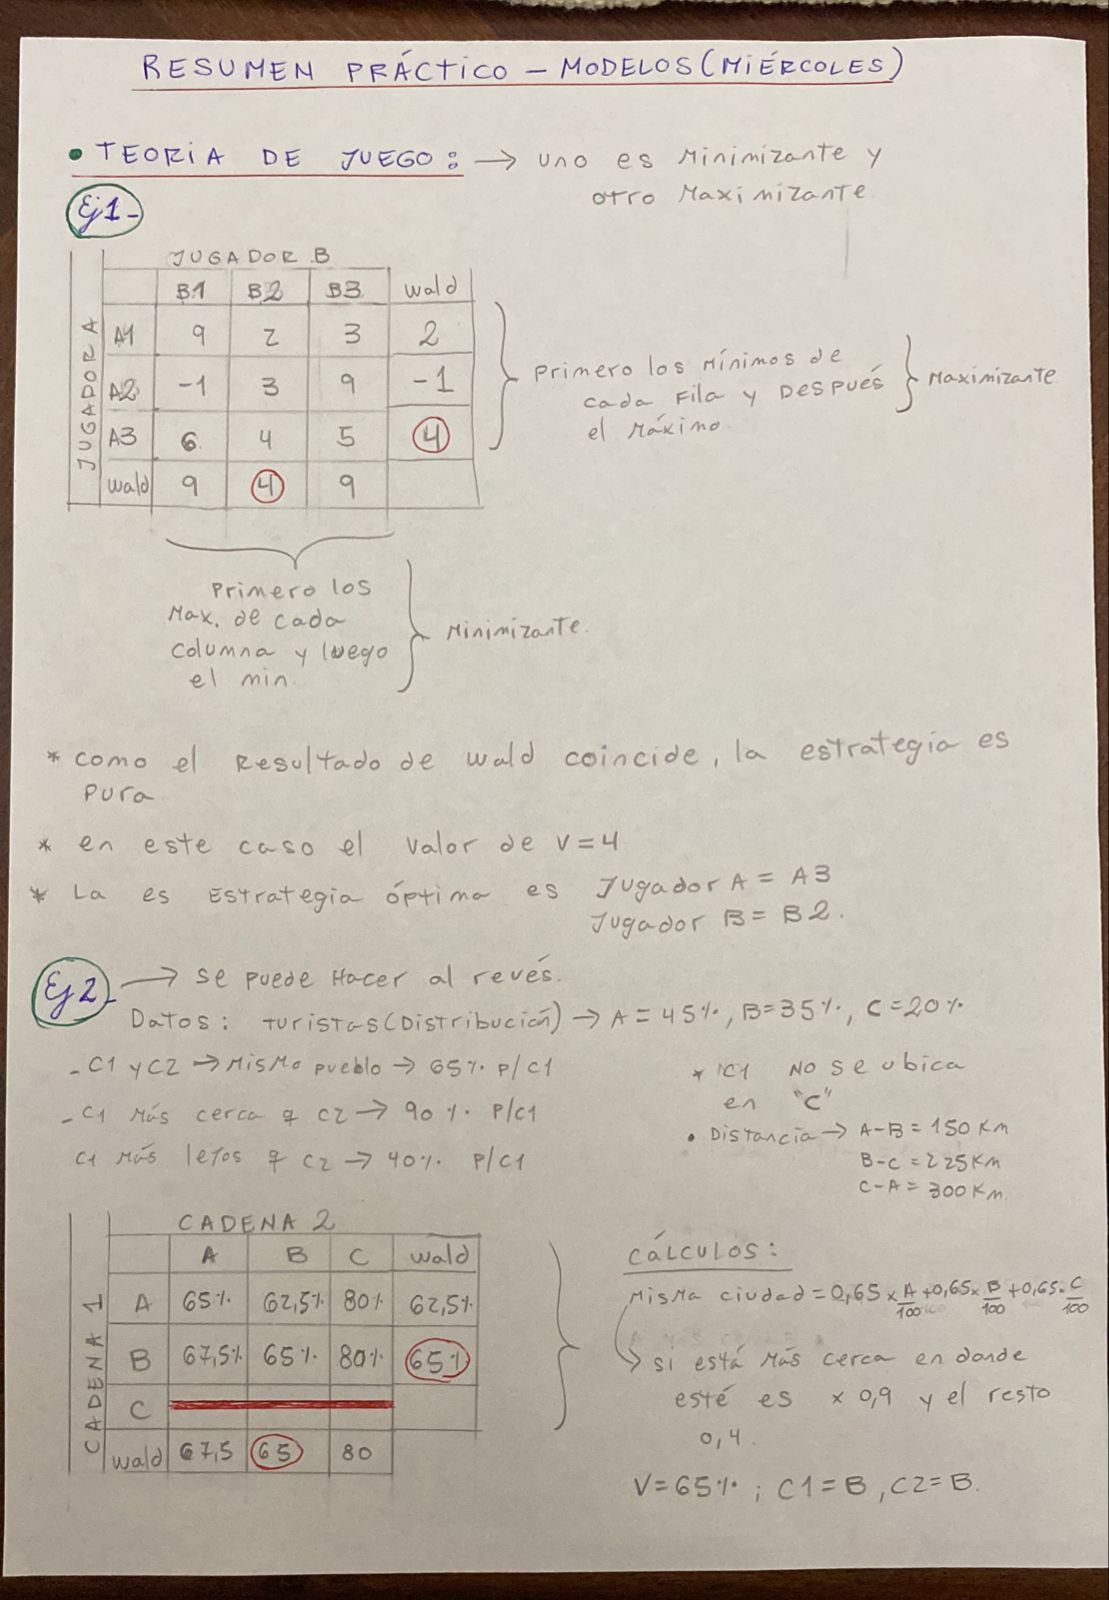 RESUMEN PRÁCTICO - MODELOS (MIÉRCOLES)
• TEORIA DE JUEGO: → uno es Minimizante y
otro Maximizante
Ej 1-
JUGADOR B
B1 B2 B3 wald
JUGADOR A
A1 9 2 3 2
A2 -1 3 9 -1
A3 6 4 5 4
wald 9 4 9
Primero los Mínimos de
cada Fila y Después
el Máximo.
Maximizante
Primero los
Max. de cada
columna y luego
el min.
Minimizante.
* como el Resultado de wald coincide, la estrategia es
Pura
* en este caso el valor de V=4
* La es Estrategia óptima es Jugador A = A3
Jugador B = B2.
Ej 2- → se puede Hacer al revés.
Datos: turistas (Distribución) → A = 45%, B=35%, C=20%
- C1 y C2 → Mismo pueblo → 65% P/C1
- C1 Más cerca q C2 → 90% P/C1
C1 Más lejos q C2 → 40% P/C1
* C1 NO se ubica
en "C"
• Distancia → A-B = 150 Km
B-C = 225 Km
C-A = 300 Km.
CADENA 2
A B C wald
CADENA 1
A 65% 62,5% 80% 62,5%
B 67,5% 65% 80% 65%
C
wald 67,5 65 80
CÁLCULOS:
Misma ciudad = 0,65 x A/100 + 0,65 x B/100 + 0,65 x C/100
→ si está Más cerca en donde
esté es x 0,9 y el resto
0,4.
V = 65% ; C1 = B , C2 = B.